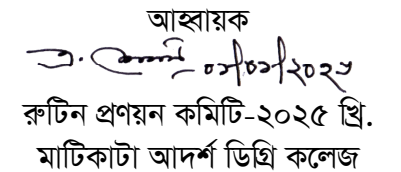 আহ্বায়ক
০১/০১/২০২৫
রুটিন প্রণয়ন কমিটি-২০২৫ খ্রি.
মাটিকাটা আদর্শ ডিগ্রি কলেজ